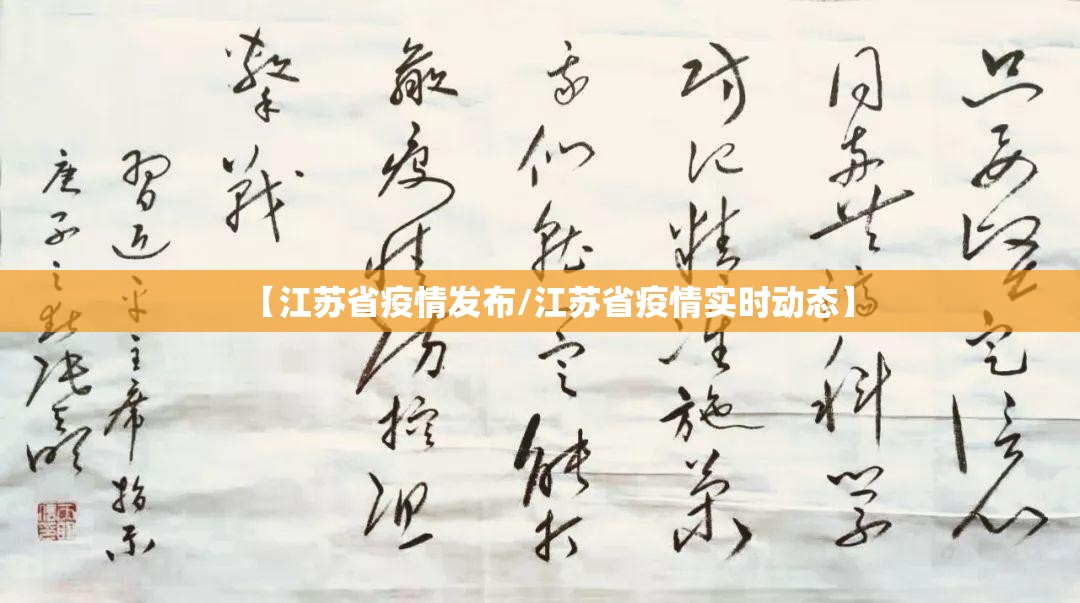 只要坚定信心
同舟共济科学
防治精准施策
我们就定能打
赢疫情防控阻
擊戰
習近平主席指示
庚子之秋
【江苏省疫情发布/江苏省疫情实时动态】